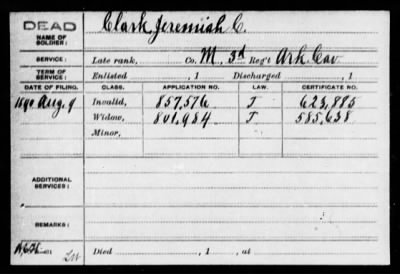 DEAD
NAME OF SOLDIER: Clark, Jeremiah C.
SERVICE: Late rank, Co. M, 3d Reg't Ark. Cav
TERM OF SERVICE: Enlisted , 1 Discharged , 1
DATE OF FILING. CLASS. APPLICATION NO. LAW. CERTIFICATE NO.
1890 Aug. 9 Invalid, 857,576 J 623,885
Widow, 801,984 J 585,638
Minor,
ADDITIONAL SERVICES:
REMARKS:
Died , 1 , at